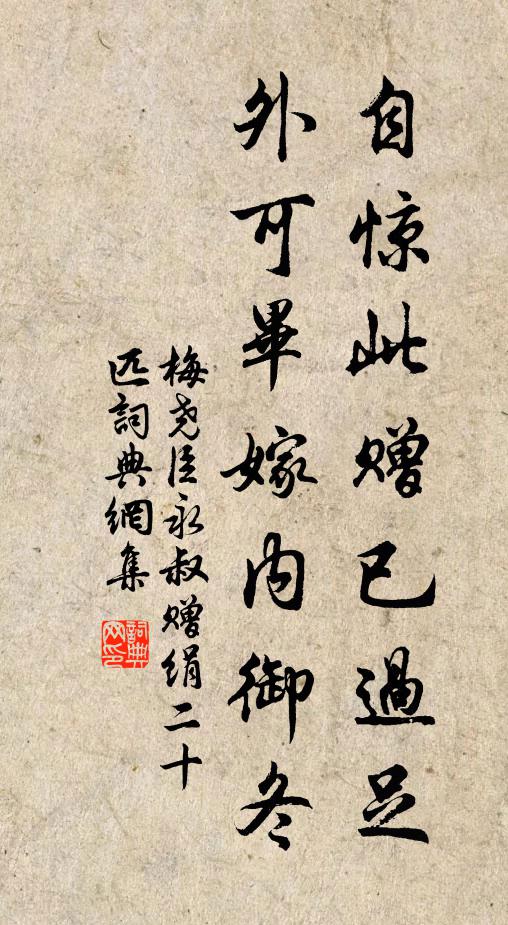 自惊此赠已過足
外可畢嫁内御冬
梅尧臣永叔赠绢二十
匹詞典網集
詞典
网印